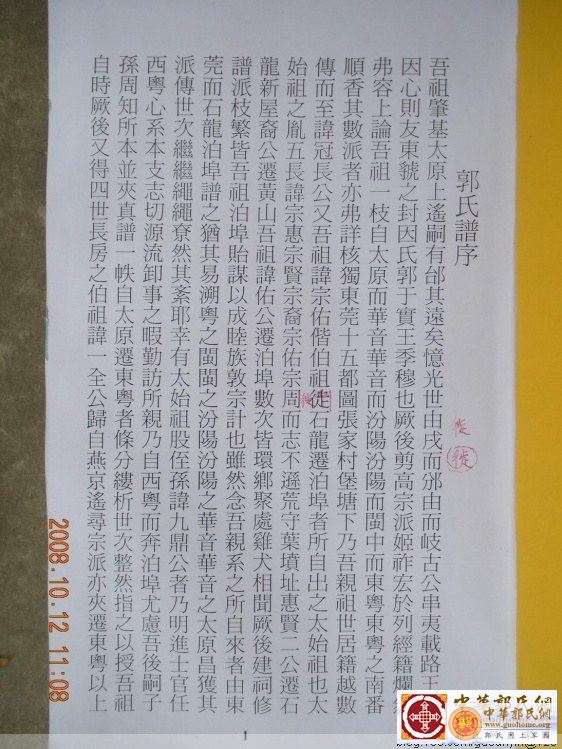 郭氏譜序
吾祖肇基太原上遙嗣有邰其遠矣憶光世由戌而邠由而岐古公串夷載路王
因心則友東虢之封因氏郭于實王季穆也厥後剪高宗派姬祚宏於列經籍爛
弗容上論吾祖一枝自太原而華音華音而汾陽汾陽而閩中而東粵東粵之南番
順香其數派者亦弗詳核獨東莞十五都圖張家村堡塘下乃吾親祖世居籍越數
傳而至諱冠長公又吾祖諱宗佑偕伯祖徒石龍遷泊埠者所自出之太始祖也太
始祖之胤五長諱宗惠宗賢宗裔宗佑宗周而志不遜荒守葉墳址惠賢二公遷石
龍新屋裔公遷黃山吾祖諱佑公遷泊埠數次皆環鄉聚處雞犬相聞厥後建祠修
譜派枝繁皆吾祖泊埠貽謀以成睦族敦宗計也雖然念吾親系之所自來者由東
莞而石龍泊埠譜之猶其易溯粵之閩閩之汾陽汾陽之華音華音之太原昌獲其
派傳世次繼繼繩繩竟然其紊耶幸有太始祖股侄孫諱九鼎公者乃明進士官任
西粵心系本支志切源流卸事之暇勤訪所親乃自西粵而奔泊埠尤慮吾後嗣子
孫周知所本並夾真譜一帙自太原遷東粵者條分縷析世次整然指之以授吾祖
自時厥後又得四世長房之伯祖諱一全公歸自燕京遙尋宗派亦夾遷東粵以上
1
2008.10.12 11:08
中華郭氏網
中華郭氏網
www.guohome.org
郭氏網上家園